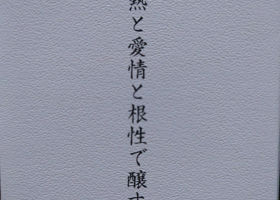 熱と愛情と根性で醸す